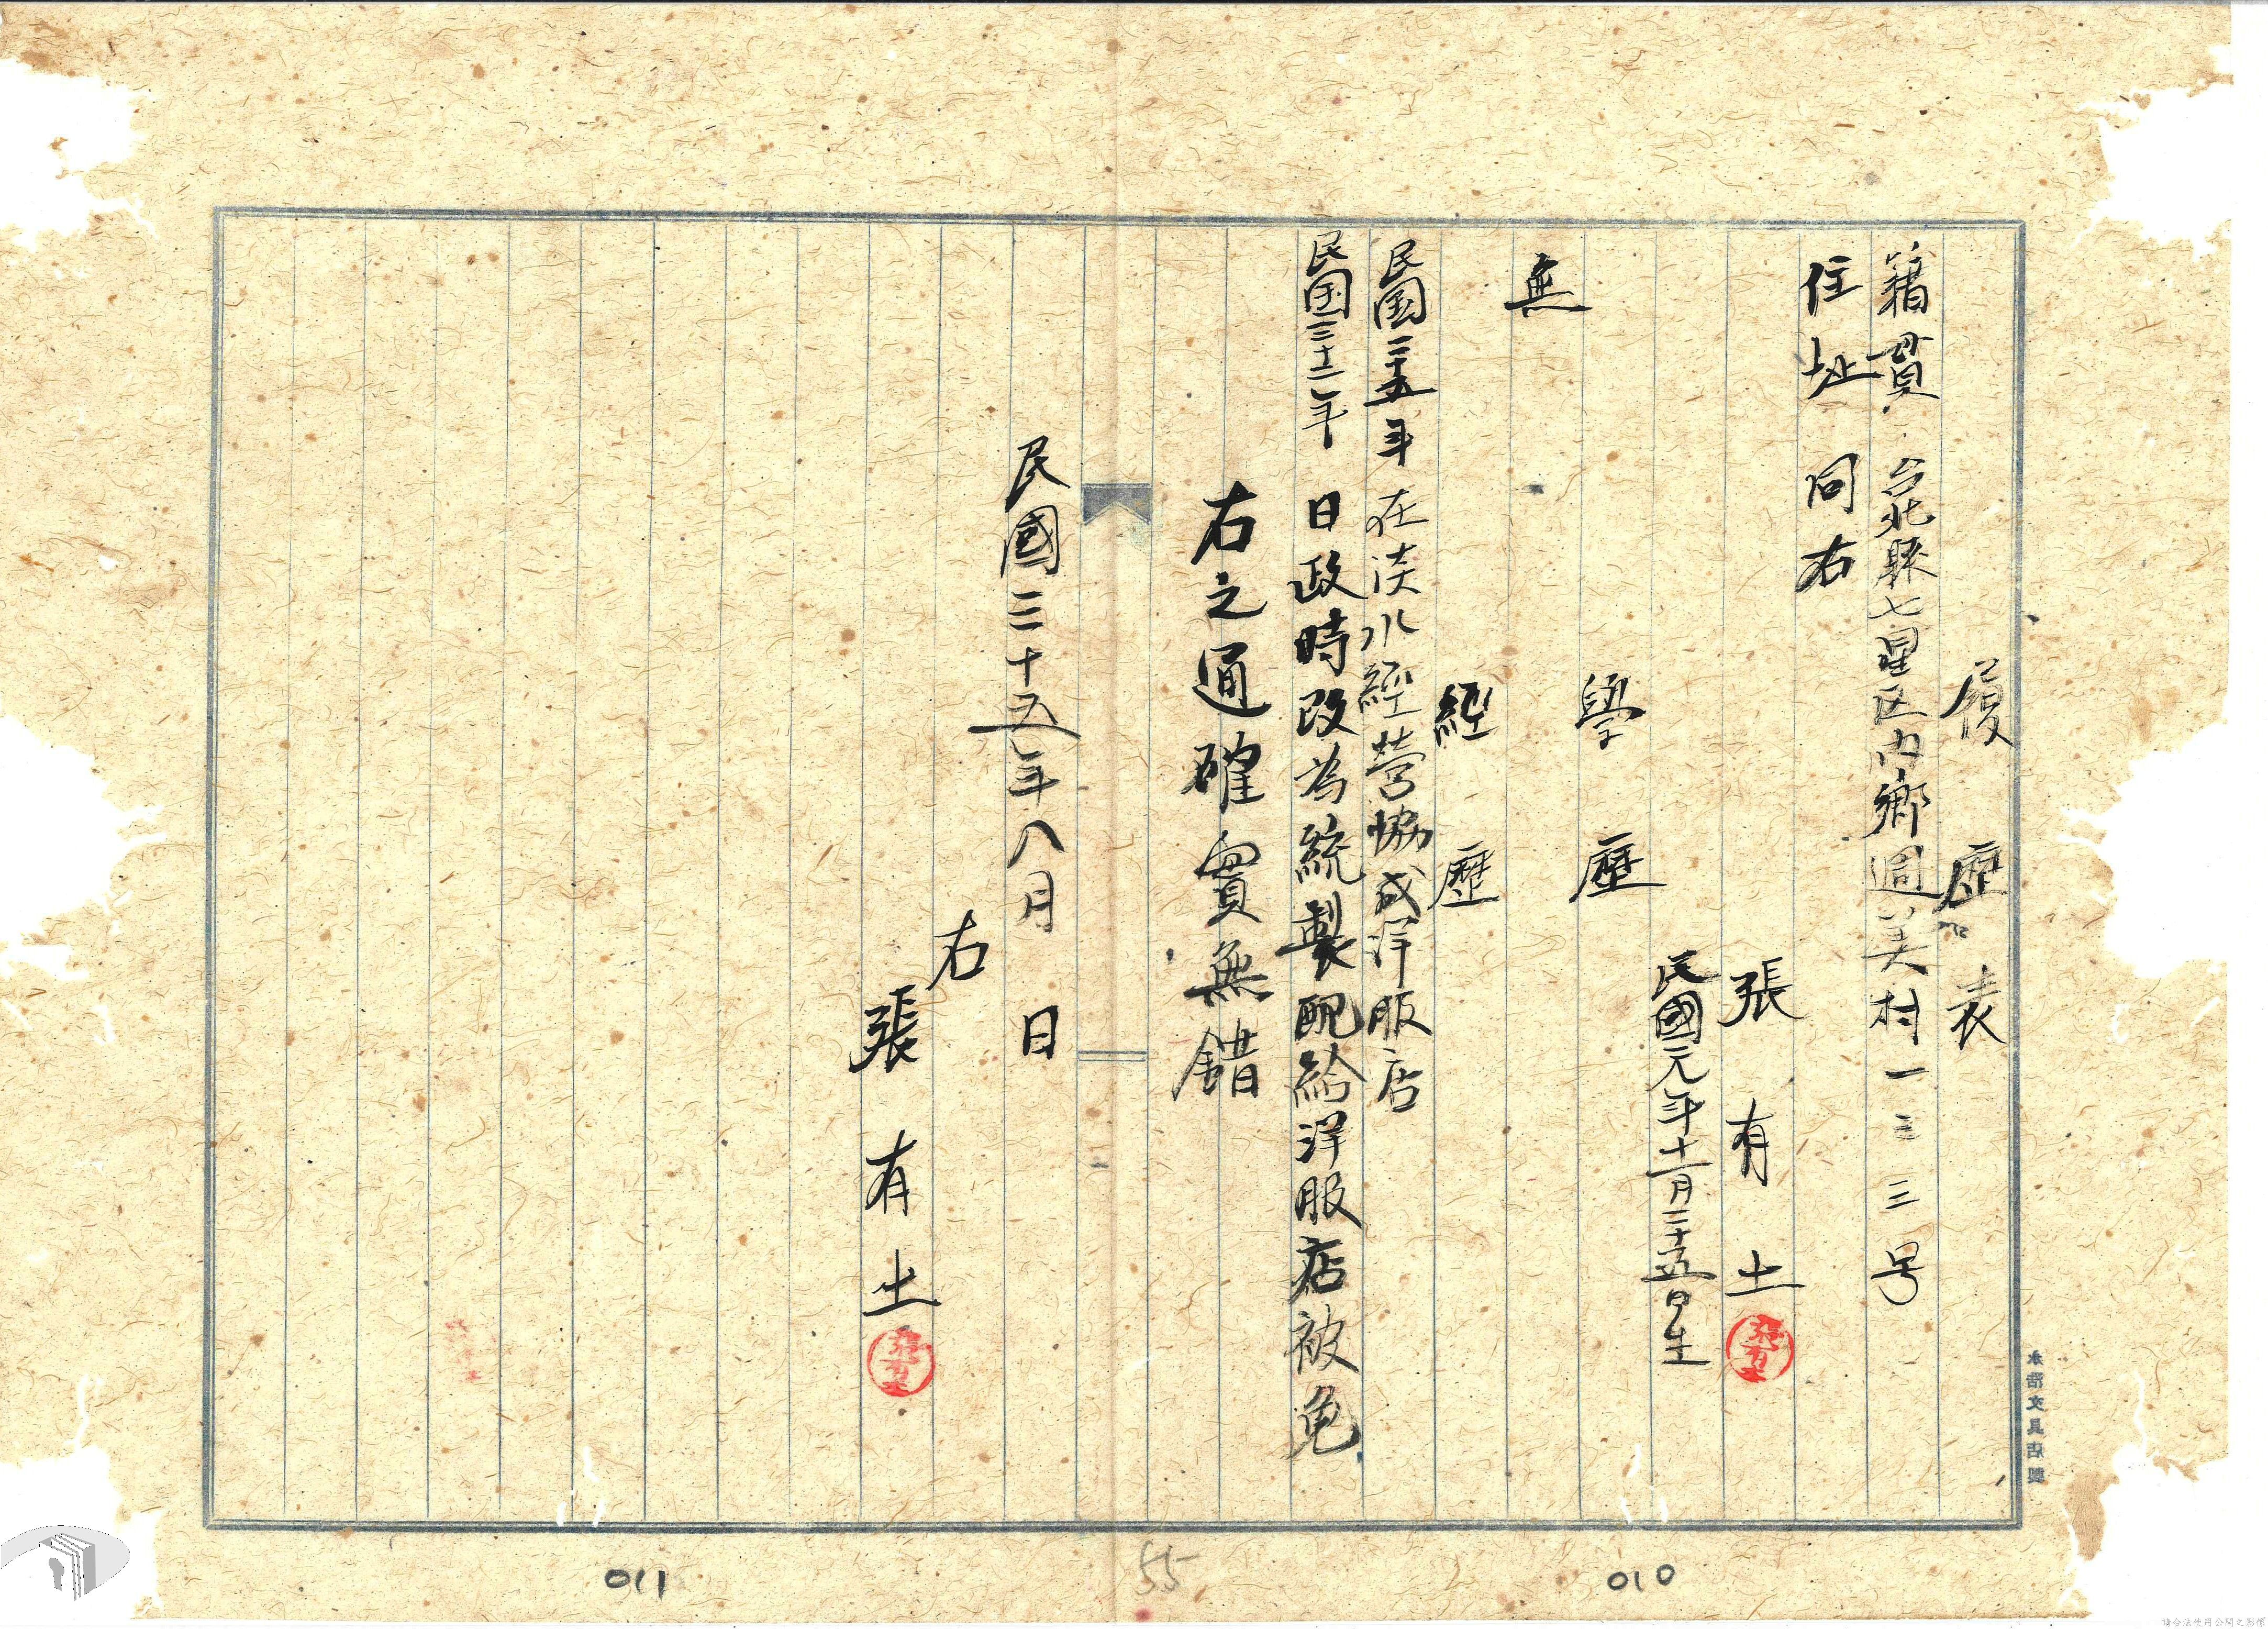 履歷表
籍貫 台北縣七星区内鄉週美村一三三号
住址 同右
張有土
張有土
民國元年十一月二十五日生
學歷
無
經歷
民国二十五年 在淡水經營協成洋服店
民国三十二年 日政時改為統製配給洋服店被免
右之通確實無錯
民國三十五年八月 日
右
張有土
張有土
永浩文具店製
010
55
011
請合法使用公開之影像